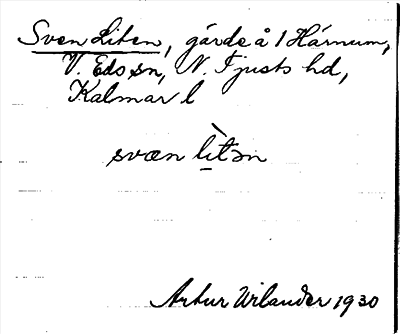 Sven Liten, gärde å 1 Härnum,
V. Eds sn, N. Tjusts hd,
Kalmar l
svæn lìtən
Artur Wilander 1930